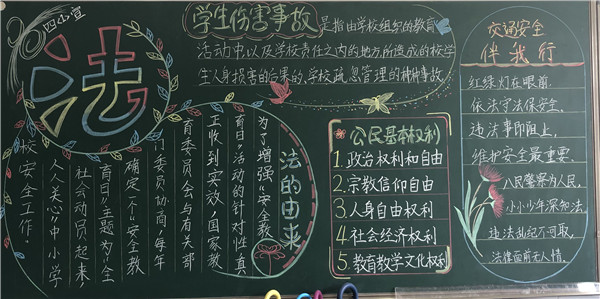 四小宣
法
学生伤害事故 是指由学校组织的教育
活动中以及学校责任之内的地方所造成的校学
生人身损害的后果的,学校疏忽管理的种种事故
法的由来
为了增强"安全教
育日"活动的针对性,真
正收到实效,国家教
育委员会与有关部
门委员协商,每年
确定一个"安全教
育日"主题为"全
社会动员起来
人人关心"中小学
校安全工作。
公民基本权利
1.政治权利和自由
2.宗教信仰自由
3.人身自由权利
4.社会经济权利
5.教育教学文化权利
交通安全
伴我行
红绿灯在眼前.
依法守法保安全.
违法事即阻上,
维护安全最重要.
人民警察为人民,
小小少年深知法.
违法乱纪不可取,
法律面前无人情.